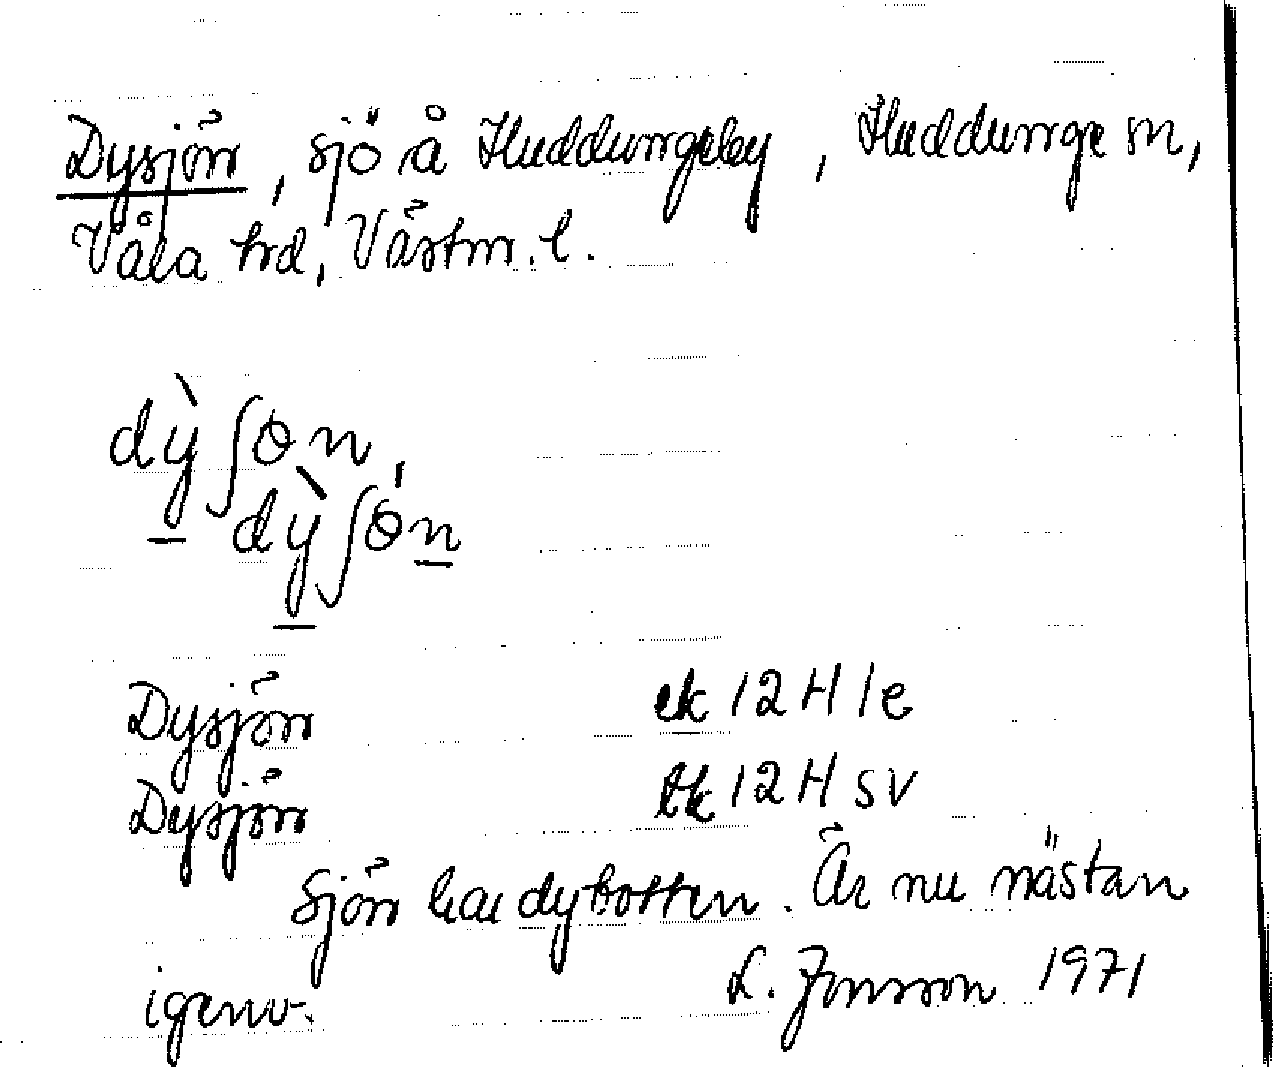 Dysjön, sjö å Huddungeby, Huddunge sn,
Våla hd, Västm. l.
dỳʃɵn,
dỳʃɵ́n
Dysjön ek 12 H 1e
Dysjön tk 12 H SV
Sjön har dybotten. Är nu nästan
igenv. L. Jonsson 1971